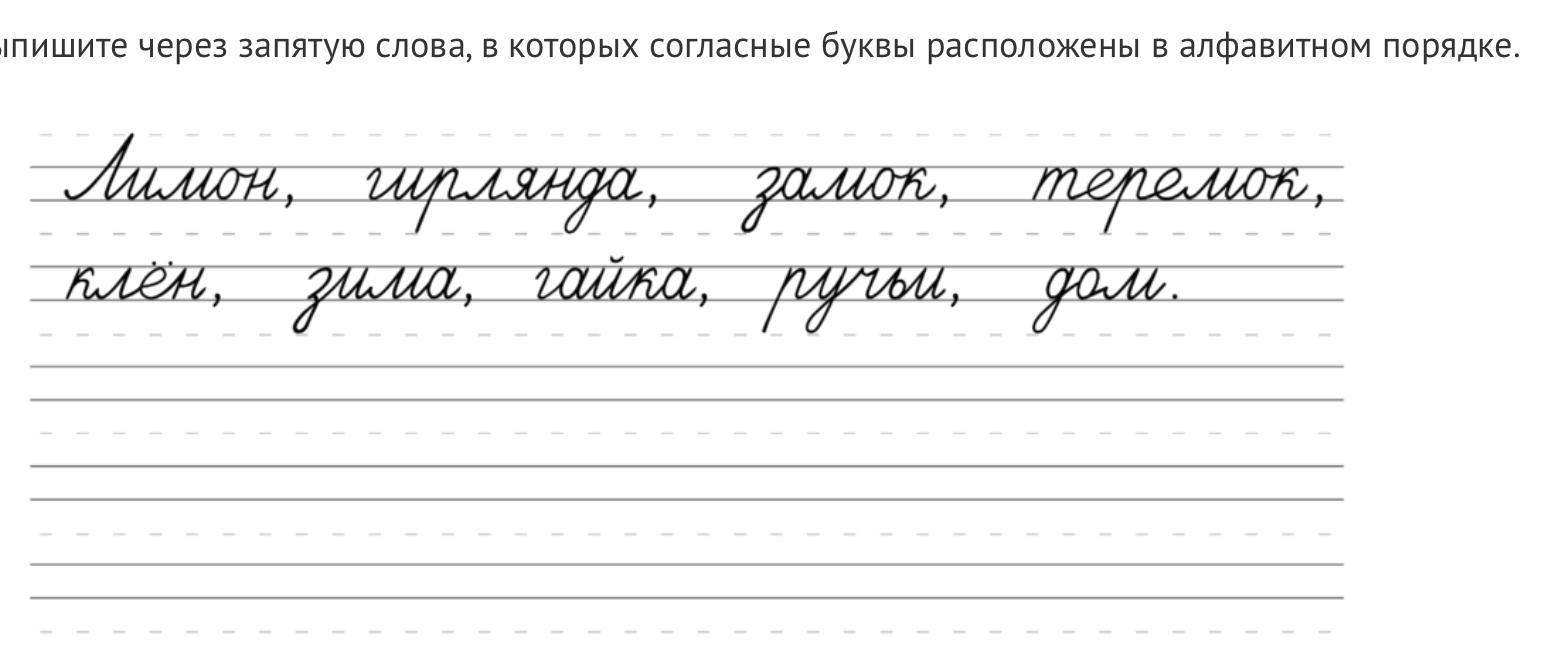 ыпишите через запятую слова, в которых согласные буквы расположены в алфавитном порядке.
Лимон, гирлянда, замок, теремок,
клён, зима, гайка, ручьи, дом.